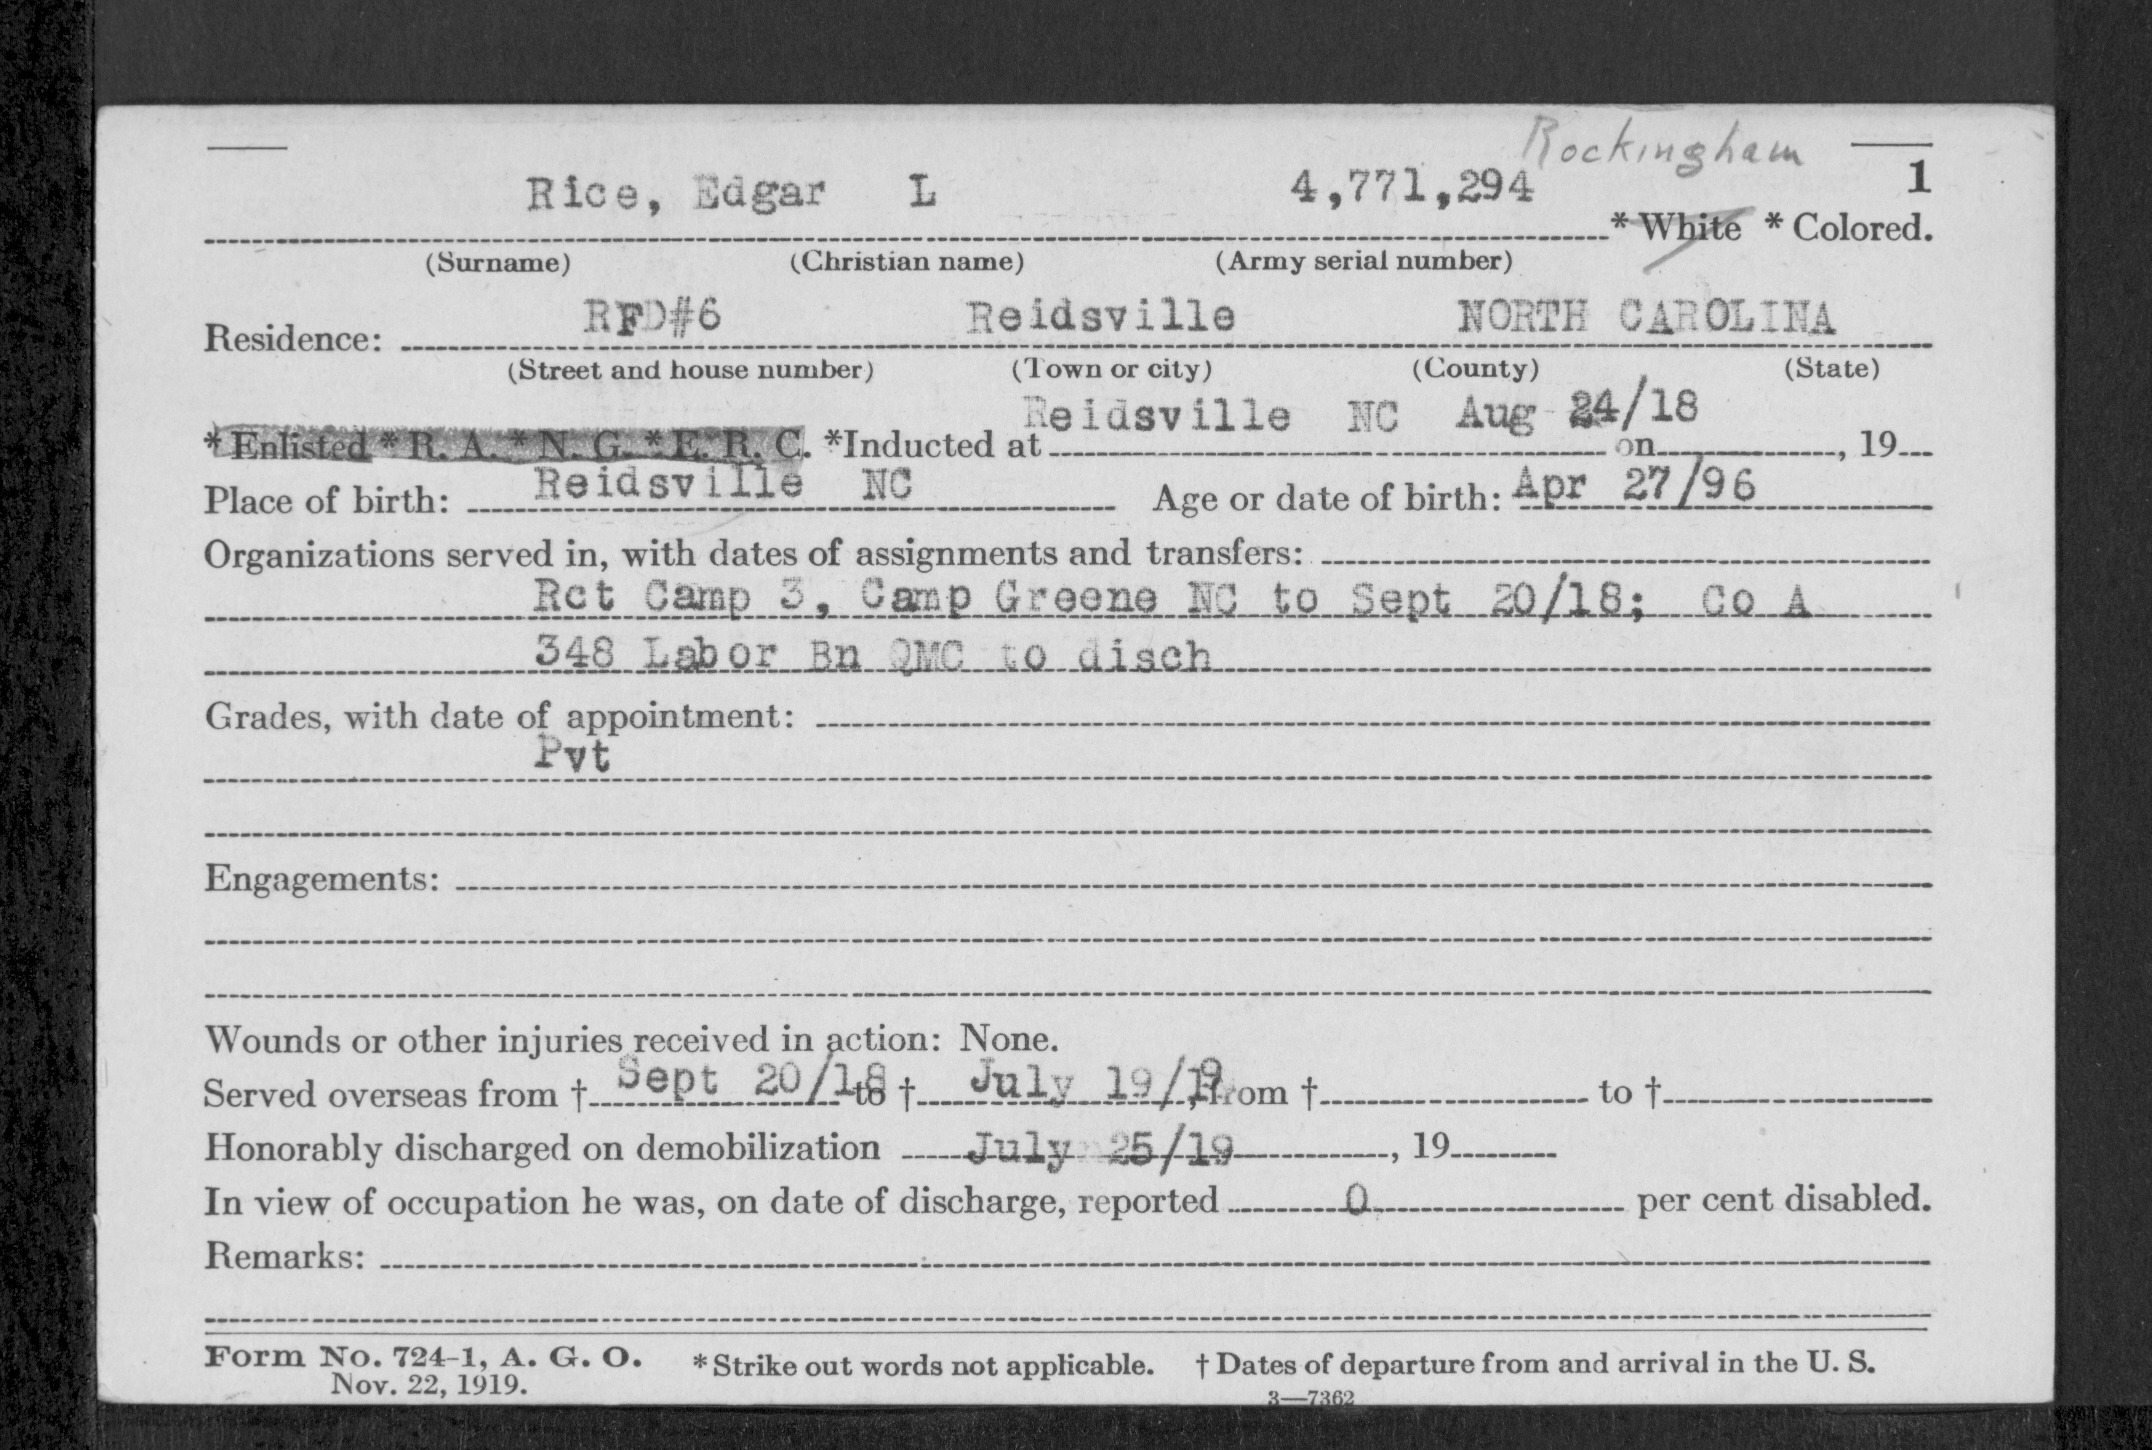 Rockingham
1
Rice, Edgar L 4,771,294 * White * Colored.
(Surname) (Christian name) (Army serial number)
RFD#6 Reidsville NORTH CAROLINA
Residence:
(Street and house number) (Town or city) (County) (State)
Reidsville NC Aug 24/18
* Enlisted * R. A. * N. G. * E. R. C. *Inducted at on , 19
Place of birth: Reidsville NC Age or date of birth: Apr 27/96
Organizations served in, with dates of assignments and transfers:
Rct Camp 3, Camp Greene NC to Sept 20/18; Co A
348 Labor Bn QMC to disch
Grades, with date of appointment:
Pvt
Engagements:
Wounds or other injuries received in action: None.
Served overseas from † Sept 20/18 to † July 19/19, from † to †
Honorably discharged on demobilization July 25/19, 19
In view of occupation he was, on date of discharge, reported 0 per cent disabled.
Remarks:
Form No. 724-1, A. G. O. * Strike out words not applicable. † Dates of departure from and arrival in the U. S.
Nov. 22, 1919. 3—7362